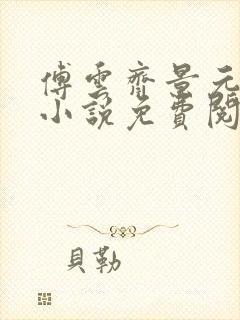 傅雲齊景元
小說免費閱
貝勒